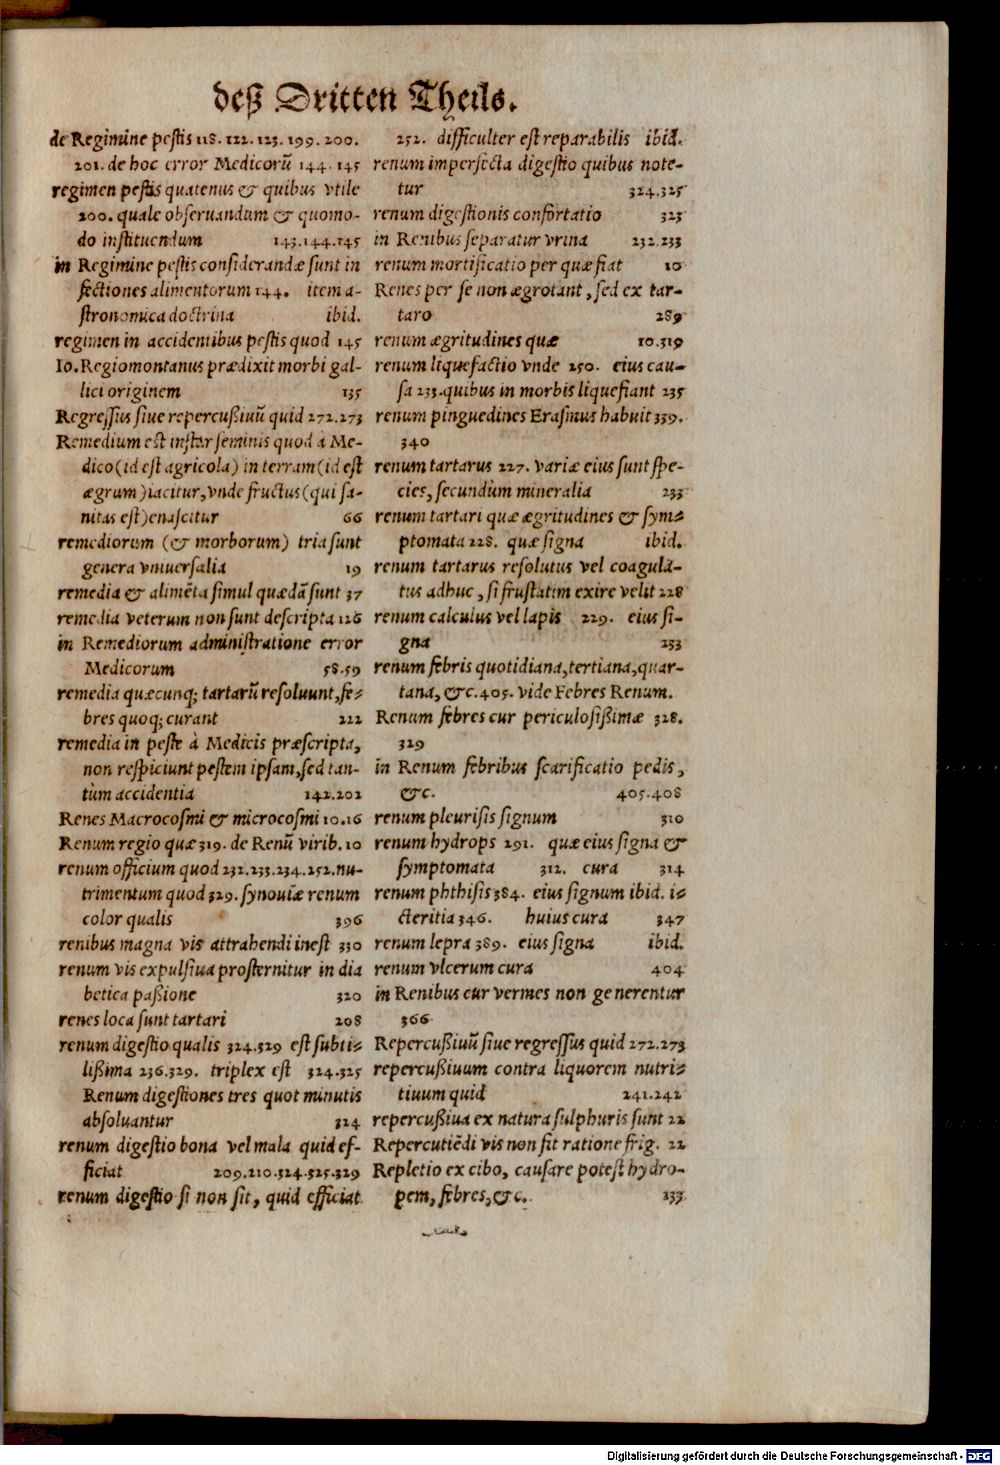 deß Dritten Theils.
de Regimine pestis 118. 122. 123. 199. 200.
201. de hoc error Medicorũ 144. 145
regimen pestis quatenus & quibus vtile
200. quale obseruandum & quomo-
do instituendum 143.144.145
in Regimine pestis considerandæ sunt in
fectiones alimentorum 144. item a-
stronomica doctrina ibid.
regimen in accidentibus pestis quod 145
Io. Regiomontanus prædixit morbi gal-
lici originem 135
Regressus siue repercußiuũ quid 272.273
Remedium est instar seminis quod à Me-
dico (id est agricola) in terram (id est
ægrum) iacitur, vnde fructus (qui sa-
nitas est) enascitur 66
remediorum (& morborum) tria sunt
genera vniuersalia 19
remedia & alimẽta simul quædã sunt 37
remedia veterum non sunt descripta 126
in Remediorum administratione error
Medicorum 58.59
remedia quæcunq; tartarũ resoluunt, fe-
bres quoq; curant 222
remedia in peste à Medicis præscripta,
non respiciunt pestem ipsam, sed tan-
tùm accidentia 142.202
Renes Macrocosmi & microcosmi 10.16
Renum regio quæ 319. de Renũ virib. 10
renum officium quod 232.233.234.252. nu-
trimentum quod 329. synouiæ renum
color qualis 396
renibus magna vis attrahendi inest 330
renum vis expulsiua prosternitur in dia
betica paßione 320
renes loca sunt tartari 208
renum digestio qualis 324.329 est subti-
lißima 236.329. triplex est 324.325
Renum digestiones tres quot minutis
absoluantur 324
renum digestio bona vel mala quid ef-
ficiat 209.210.324.325.329
renum digestio si non sit, quid efficiat
252. difficulter est reparabilis ibid.
renum imperfecta digestio quibus note-
tur 324.325
renum digestionis confortatio 323
in Renibus separatur vrina 232.233
renum mortificatio per quæ fiat 10
Renes per se non ægrotant, sed ex tar-
taro 289
renum ægritudines quæ 10.319
renum liquefactio vnde 250. eius cau-
sa 233. quibus in morbis liquefiant 235
renum pinguedines Erasmus habuit 339.
340
renum tartarus 227. variæ eius sunt spe-
cies, secundùm mineralia 233
renum tartari quæ ægritudines & sym-
ptomata 228. quæ signa ibid.
renum tartarus resolutus vel coagula-
tus adhuc, si frustatim exire velit 228
renum calculus vel lapis 229. eius si-
gna 233
renum febris quotidiana, tertiana, quar-
tana, &c. 405. vide Febres Renum.
Renum febres cur periculosißimæ 328.
329
in Renum febribus scarificatio pedis,
&c. 405.408
renum pleurisis signum 310
renum hydrops 291. quæ eius signa &
symptomata 312. cura 314
renum phthisis 384. eius signum ibid. i-
cteritia 346. huius cura 347
renum lepra 389. eius signa ibid.
renum vlcerum cura 404
in Renibus cur vermes non generentur
366
Repercußiuũ siue regressus quid 272.273
repercußiuum contra liquorem nutri-
tiuum quid 241.242
repercußiua ex natura sulphuris sunt 22
Repercutiẽdi vis non fit ratione frig. 22
Repletio ex cibo, causare potest hydro-
pem, febres, &c. 133
Digitalisierung gefördert durch die Deutsche Forschungsgemeinschaft - DFG